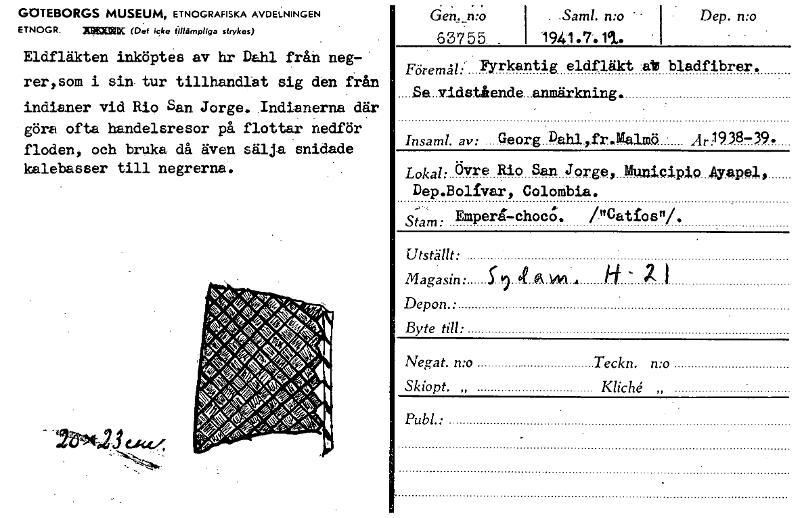 GÖTEBORGS MUSEUM, ETNOGRAFISKA AVDELNINGEN
ETNOGR. (Det icke tillämpliga strykes)
Eldfläkten inköptes av hr Dahl från neg-
rer,som i sin tur tillhandlat sig den från
indianer vid Rio San Jorge. Indianerna där
göra ofta handelsresor på flottar nedför
floden, och bruka då även sälja snidade
kalebasser till negrerna.
20×23 cm.
Gen. n:o Saml. n:o Dep. n:o
63755 1941.7.12.
Föremål: Fyrkantig eldfläkt av bladfibrer.
Se vidstående anmärkning.
Insaml. av: Georg Dahl,fr.Malmö År:1938-39.
Lokal: Övre Rio San Jorge, Municipio Ayapel,
Dep.Bolívar, Colombia.
Stam: Emperá-chocó. /"Catíos"/.
Utställt:
Magasin: Sydam. H-21
Depon.:
Byte till:
Negat. n:o Teckn. n:o
Skiopt. „ Kliché „
Publ.: